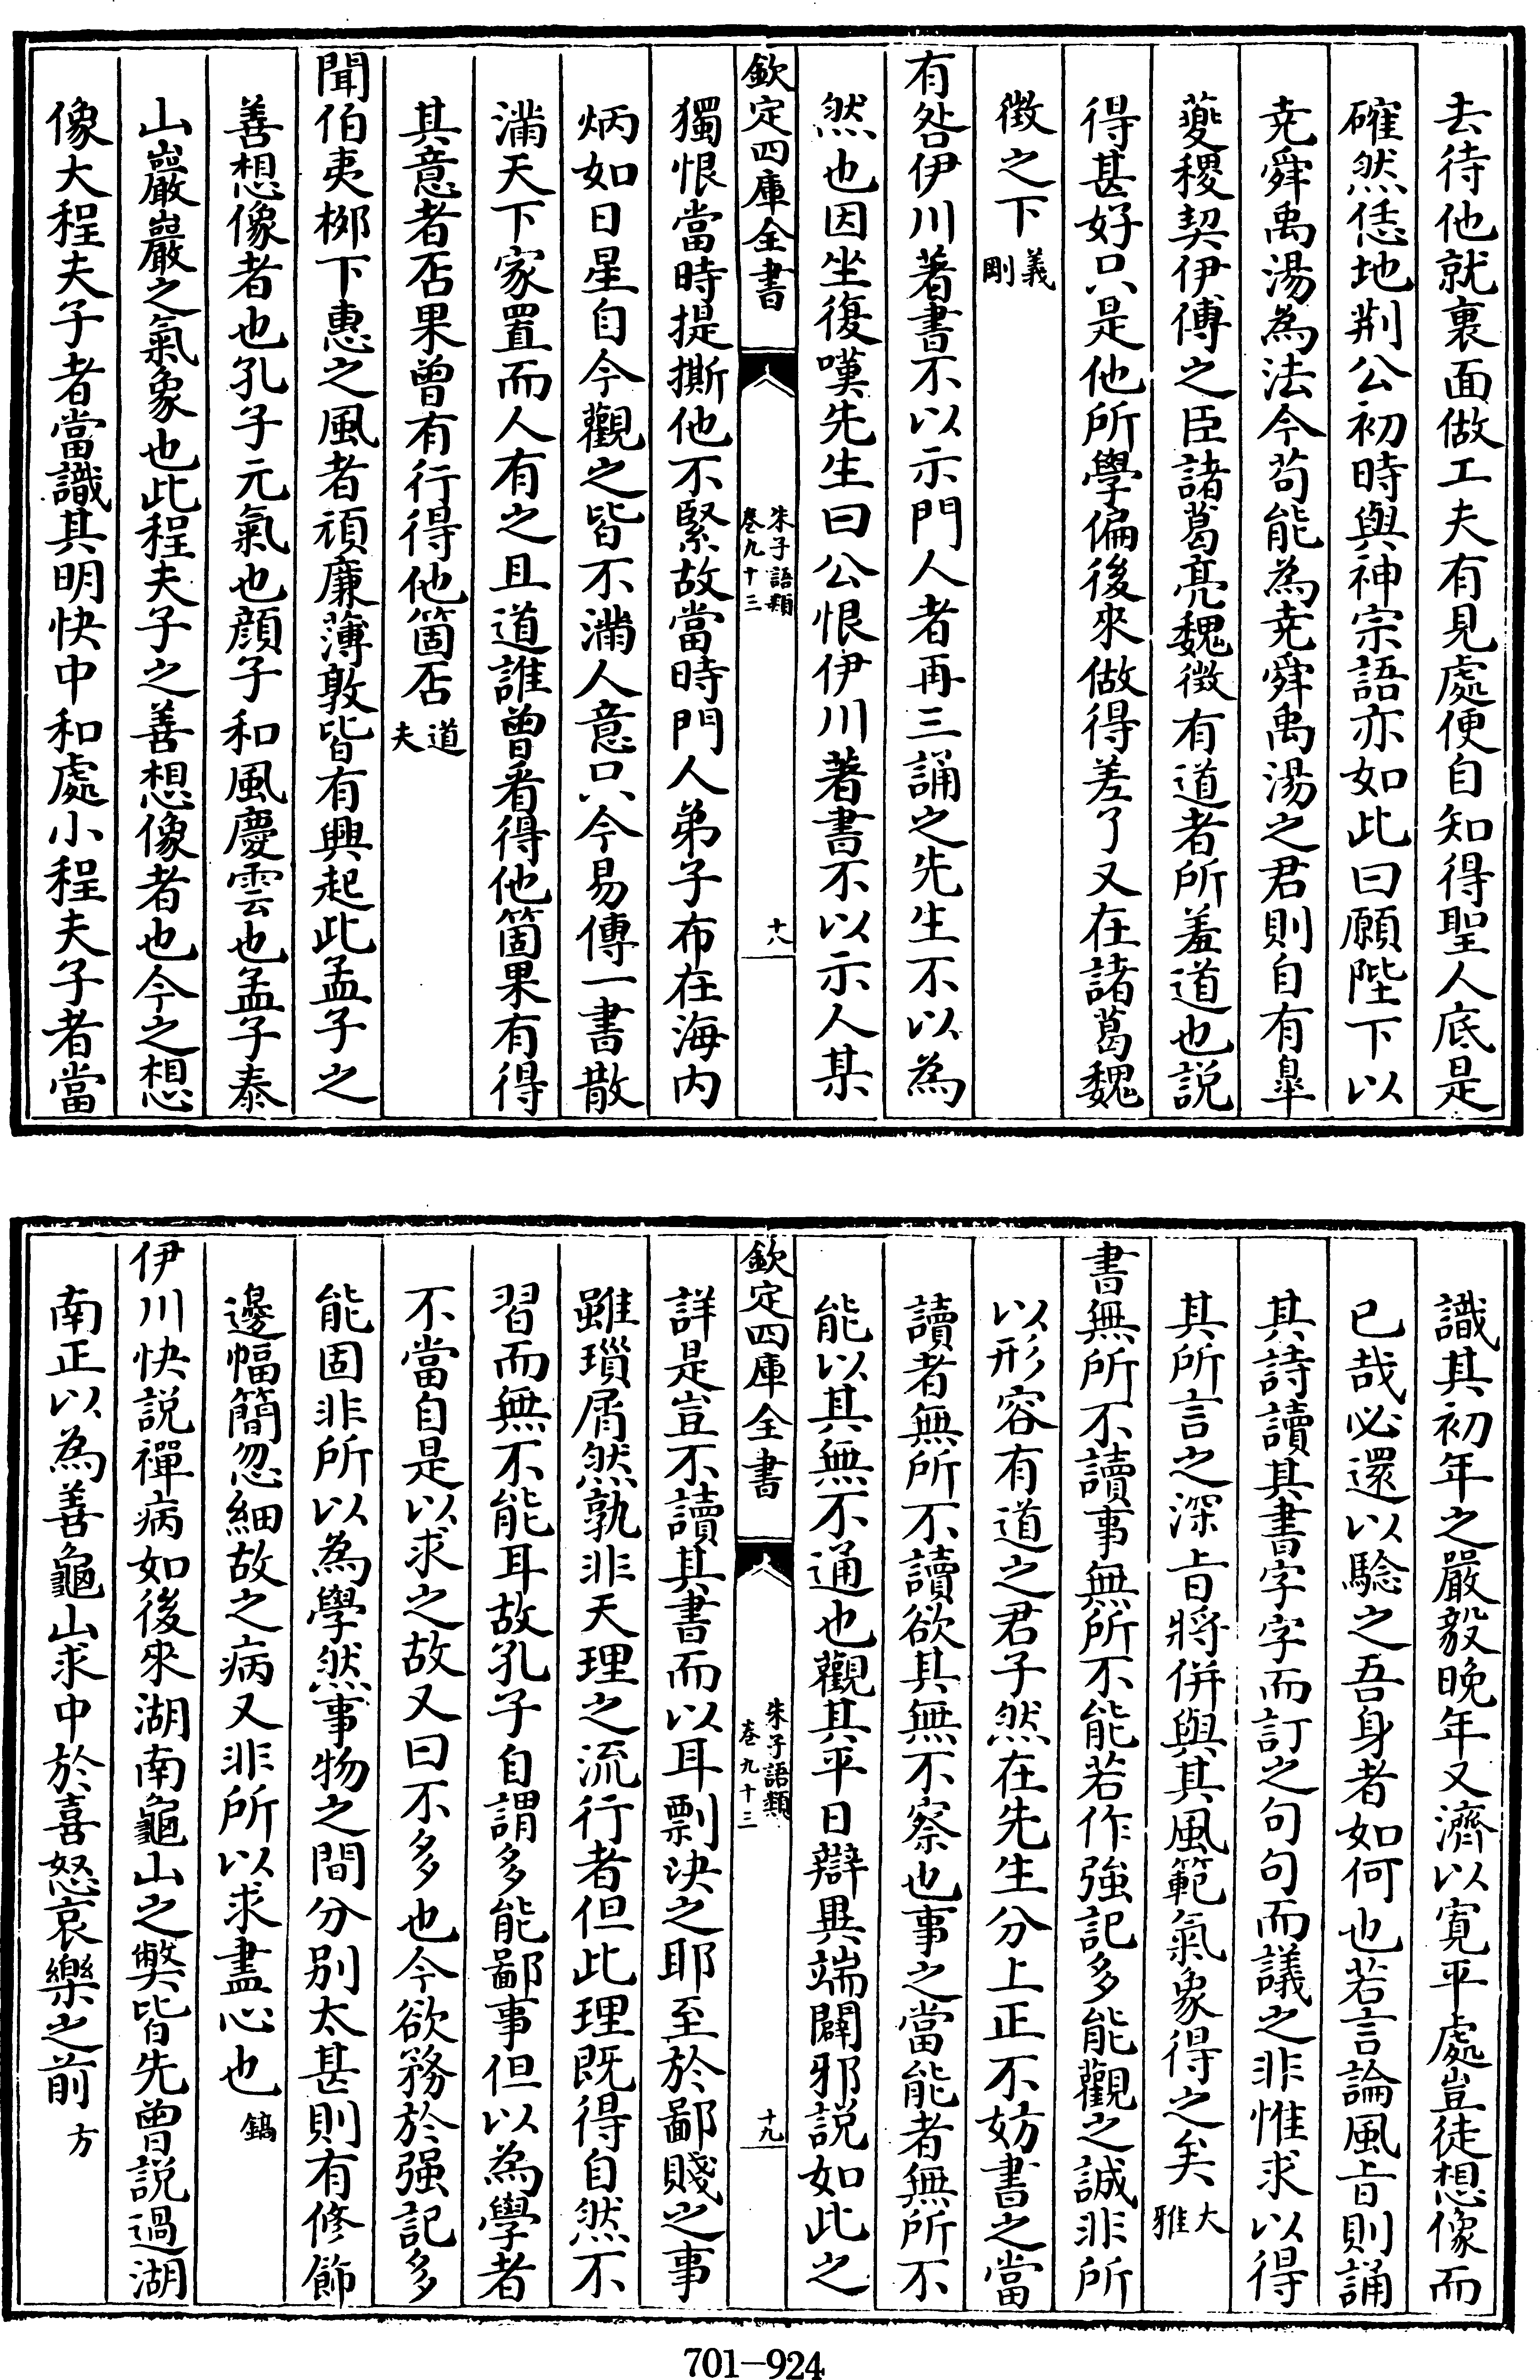 去待他就裏面做工夫有見處便自知得聖人底是
確然恁地荆公初時與神宗語亦如此曰願陛下以
堯舜禹湯為法今苟能為堯舜禹湯之君則自有臯
夔稷契伊傅之臣諸葛亮魏徴有道者所羞道也説
得甚好只是他所學偏後來做得差了又在諸葛魏
徴之下義剛
有咎伊川著書不以示門人者再三誦之先生不以為
然也因坐復嘆先生曰公恨伊川著書不以示人某
欽定四庫全書
朱子語類
卷九十三
十八
獨恨當時提撕他不緊故當時門人弟子布在海内
炳如日星自今觀之皆不滿人意只今易傳一書散
滿天下家置而人有之且道誰曽看得他箇果有得
其意者否果曽有行得他箇否道夫
聞伯夷栁下惠之風者頑廉薄敦皆有興起此孟子之
善想像者也孔子元氣也顔子和風慶雲也孟子泰
山巖巖之氣象也此程夫子之善想像者也今之想
像大程夫子者當識其明快中和處小程夫子者當
識其初年之嚴毅晚年又濟以寛平處豈徒想像而
已哉必還以騐之吾身者如何也若言論風㫖則誦
其詩讀其書字字而訂之句句而議之非惟求以得
其所言之深㫖將併與其風範氣象得之矣大雅
書無所不讀事無所不能若作強記多能觀之誠非所
以形容有道之君子然在先生分上正不妨書之當
讀者無所不讀欲其無不察也事之當能者無所不
能以其無不通也觀其平日辯異端闢邪説如此之
欽定四庫全書
朱子語類
卷九十三
十九
詳是豈不讀其書而以耳剽決之耶至於鄙賤之事
雖瑣屑然孰非天理之流行者但此理既得自然不
習而無不能耳故孔子自謂多能鄙事但以為學者
不當自是以求之故又曰不多也今欲務於强記多
能固非所以為學然事物之間分别太甚則有修飾
邊幅簡忽細故之病又非所以求盡心也鎬
伊川快説禪病如後來湖南龜山之獘皆先曽説過湖
南正以為善龜山求中於喜怒哀樂之前方
701-924